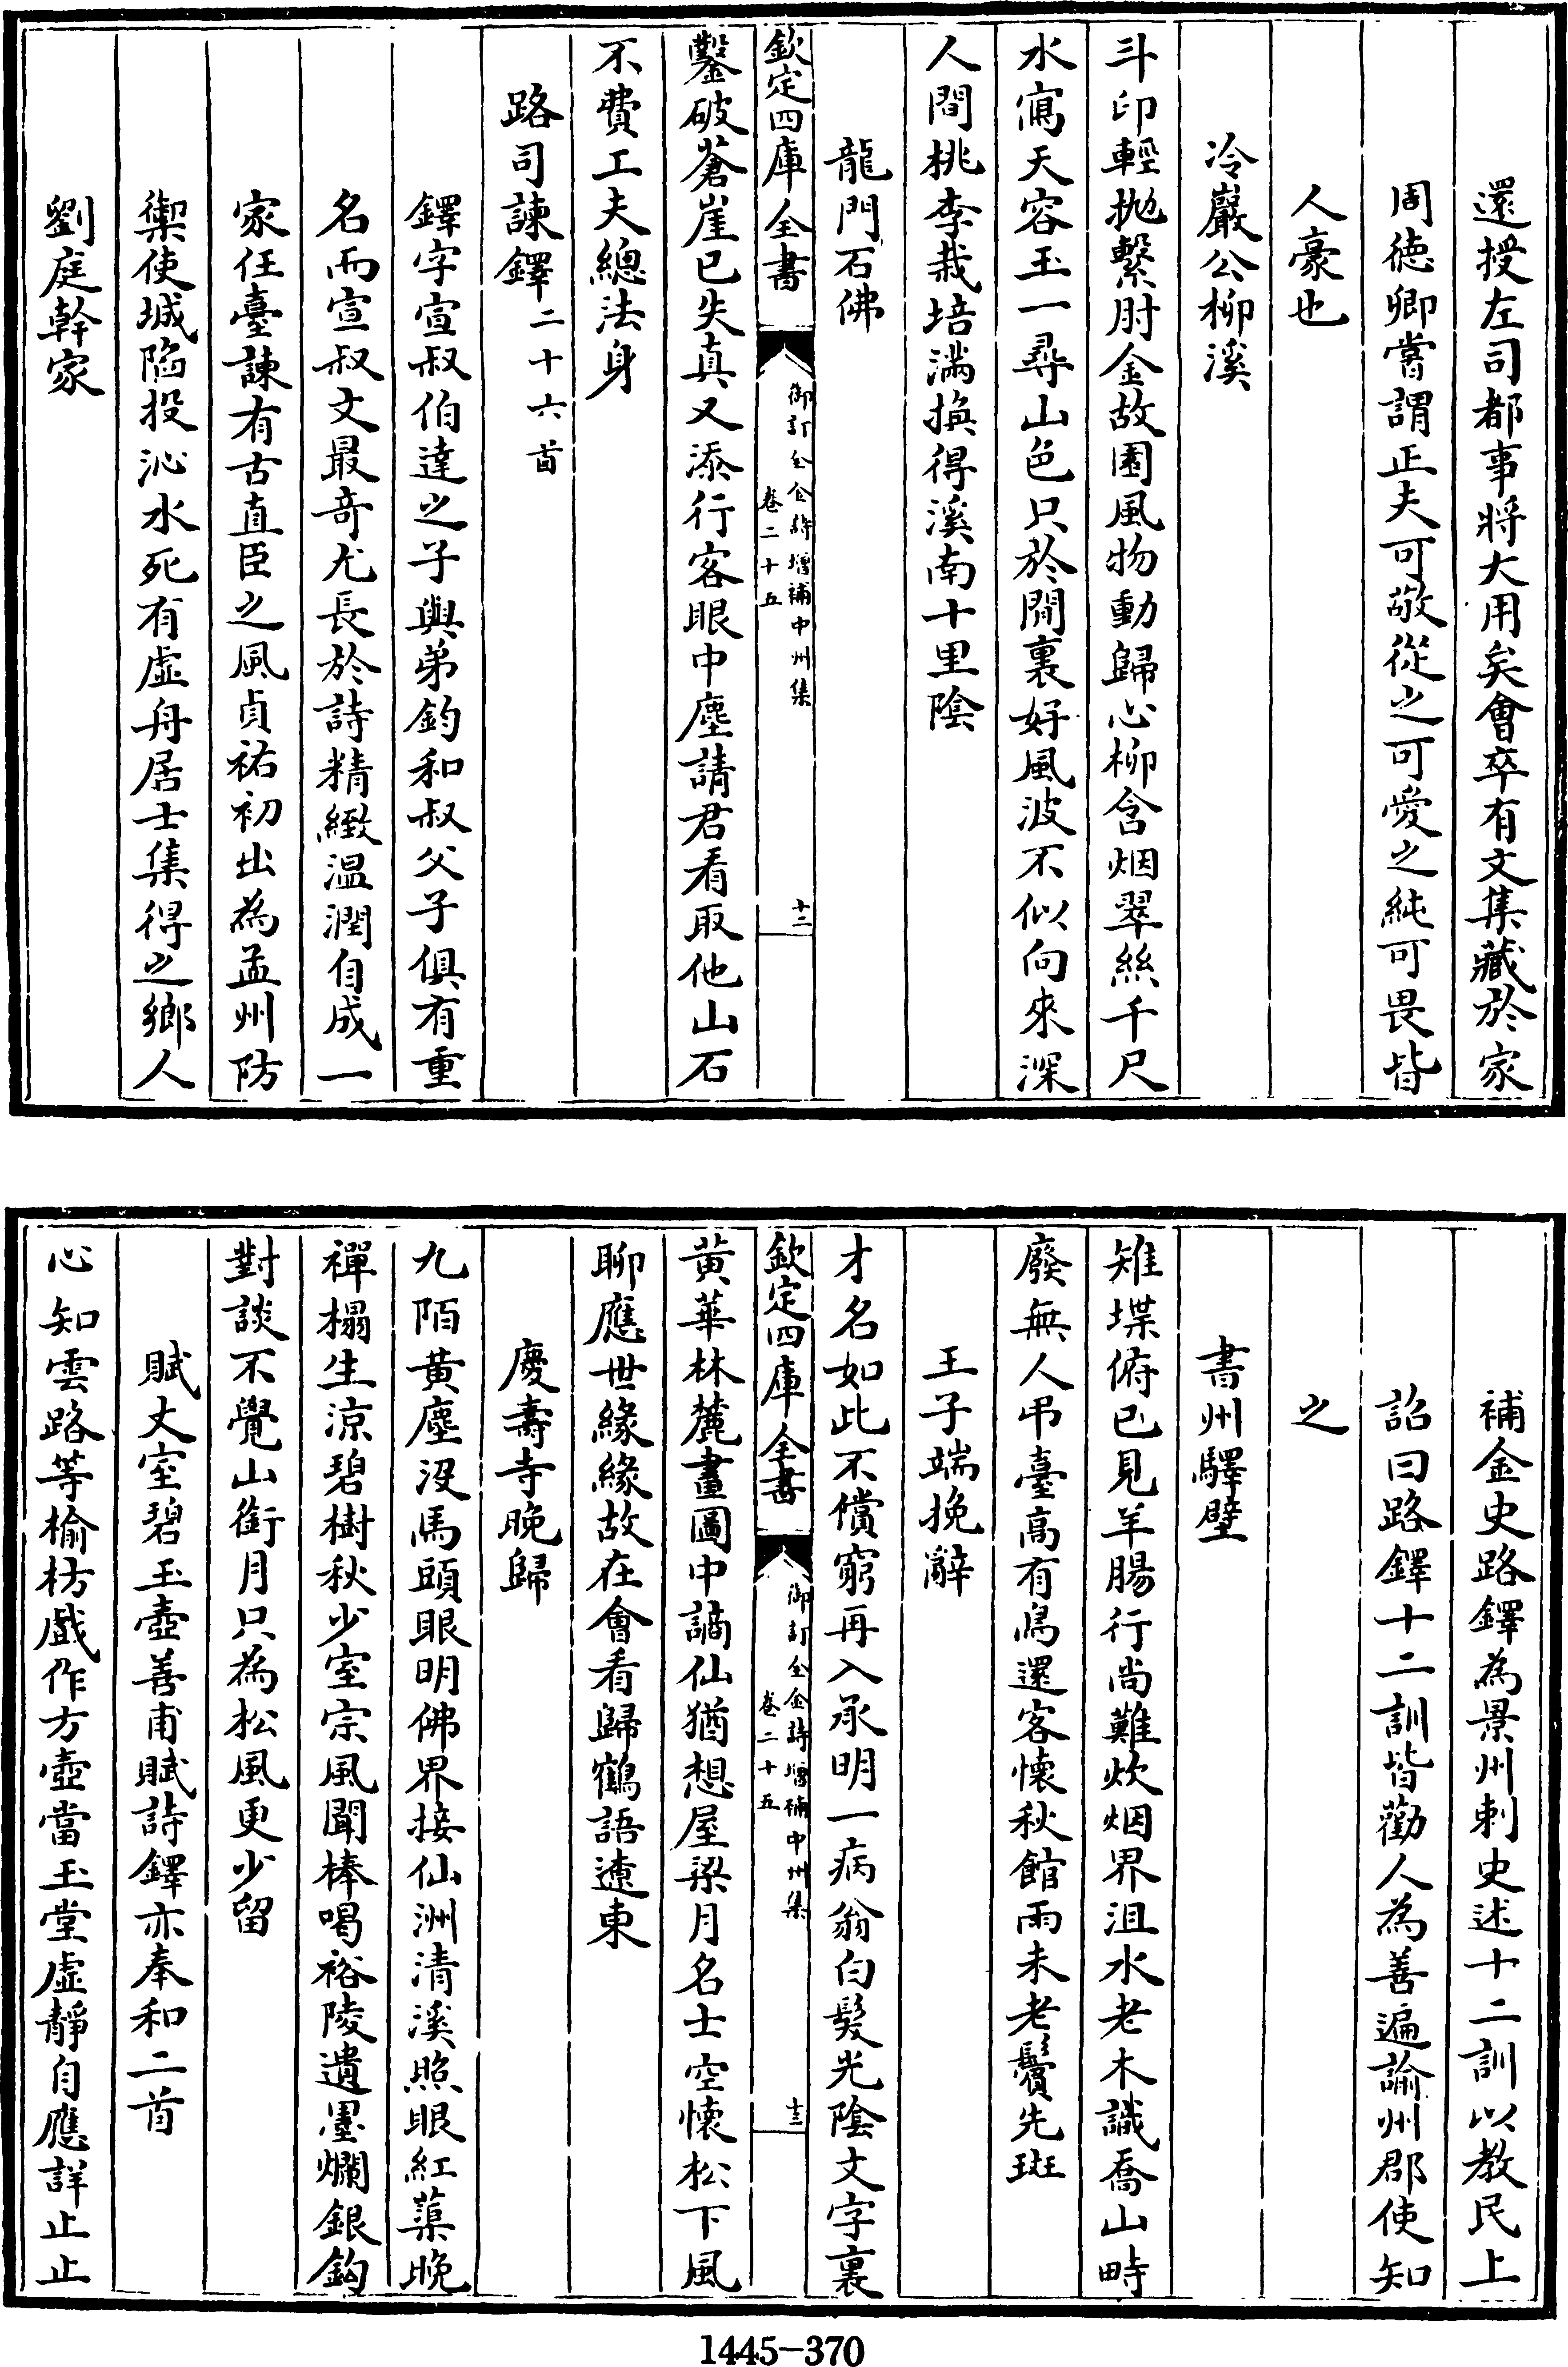 還授左司都事將大用矣會卒有文集藏於家
周德卿嘗謂正夫可敬從之可愛之純可畏皆
人豪也
冷巖公柳溪
斗印輕拋繫肘金故園風物動歸心柳含烟翠絲千尺
水寫天容玉一尋山色只於閒裏好風波不似向來深
人間桃李栽培滿換得溪南十里陰
龍門石佛
欽定四庫全書
御訂全金詩增補中州集
卷二十五
十二
鑿破蒼崖已失真又添行客眼中塵請君看取他山石
不費工夫總法身
路司諫鐸二十六首
鐸字宣叔伯達之子與弟鈞和叔父子俱有重
名而宣叔文最奇尤長於詩精緻溫潤自成一
家任臺諫有古直臣之風貞祐初出為孟州防
禦使城陷投沁水死有虛舟居士集得之鄉人
劉庭幹家
補金史路鐸為景州刺史述十二訓以教民上
詔曰路鐸十二訓皆勸人為善遍諭州郡使知
之
書州驛壁
雉堞俯已見羊腸行尚難炊烟界沮水老木識喬山畤
廢無人弔臺高有鳥還客懷秋館雨未老鬢先斑
王子端挽辭
才名如此不償窮再入承明一病翁白髮光陰文字裏
欽定四庫全書
御訂全金詩增補中州集
卷二十五
十三
黃華林麓畫圖中謫仙猶想屋梁月名士空懷松下風
聊應世緣緣故在會看歸鶴語遼東
慶壽寺晚歸
九陌黃塵沒馬頭眼明佛界接仙洲清溪照眼紅蕖晚
禪榻生涼碧樹秋少室宗風聞棒喝裕陵遺墨爛銀鈎
對談不覺山銜月只為松風更少留
賦丈室碧玉壺善甫賦詩鐸亦奉和二首
心知雲路等榆枋戲作方壺當玉堂虛靜自應詳止止
1445-370